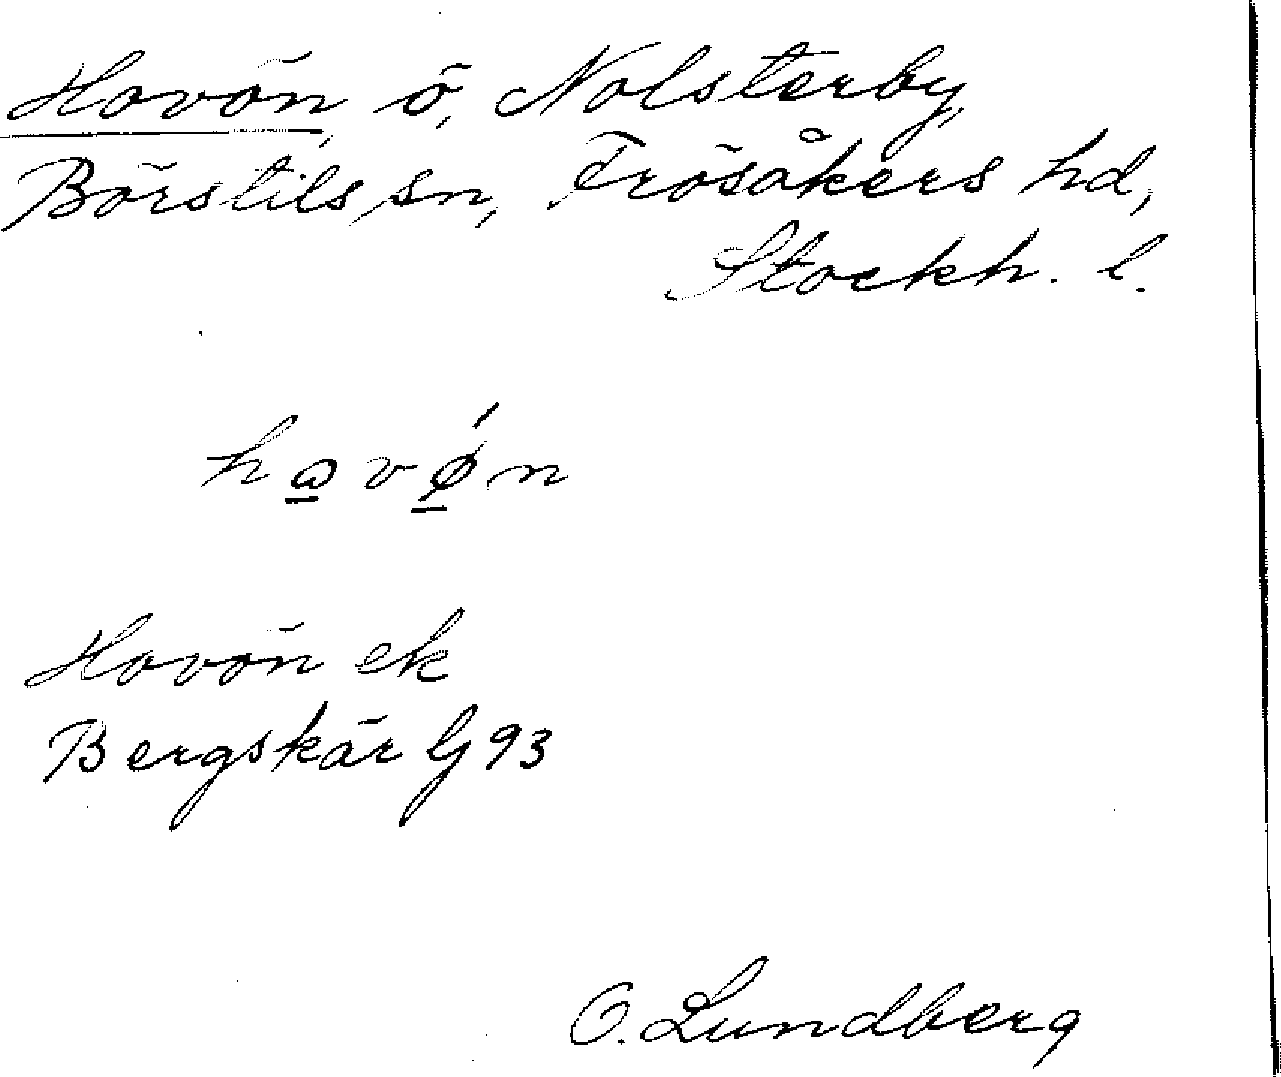 Hovön, ö, Nolsterby,
Börstils sn, Frösåkers hd,
Stockh. l.
hɷvǿn
Hovön ek
Bergskär G 93
O. Lundberg